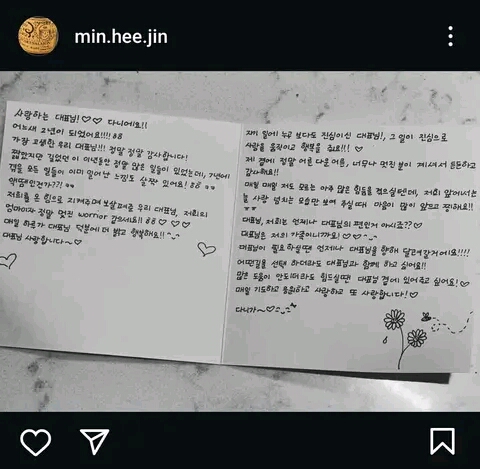 min.hee.jin
사랑하는 대표님! ♡♡ 다니에요!!
어느새 2년이 되었어요!!!! 88
가장 고생한 우리 대표님!!! 정말 정말 감사합니다!
짧았지만 길었던 이 2년동안 정말 많은 일들이 있었는데,
겪을 모든 일들이 이미 일어난 느낌도 살짝 있어요! 88 ㅋㅋ
저희를 온 힘으로 지켜주며 보살펴준 우리 대표님, 저희의
엄마이자 정말 멋진 worrior 같으세요!! 88 ♡♡
매일 하루가 대표님 덕분에 더 밝고 행복해요!! ^_^
대표님 사랑합니다~ ♡
자기 일에 누구 보다도 진심이신 대표님!, 그 일이 진심으로
사람을 움직이고 행복을 줘요!!! ♡
제 곁에 정말 어른 다운 어른, 너무나 멋진 분이 계셔서 든든하고
감사해요!!
매일 매일 저도 모르는 아주 많은 힘듦을 겪으실텐데, 저희 앞에서는
늘 사랑 넘치는 모습만 보여 주실 때 마음이 많이 앞으고 찡해요!!
대표님, 저희는 언제나 대표님의 편인거 아시죠??♡
대표님은 저의 가족이니까요! ♡♡^_^
대표님이 필요하실땐 언제나 대표님을 향해 달려갈거에요!!!!
어떤길을 선택 하더라도 대표님과 함께 하고 싶어요!!
많은 도움이 안되더라도 힘드실땐 대표님 곁에 있어주고 싶어요! ♡
매일 기도하고 응원하고 사랑하고 또 사랑합니다! ♡
다니가~♡